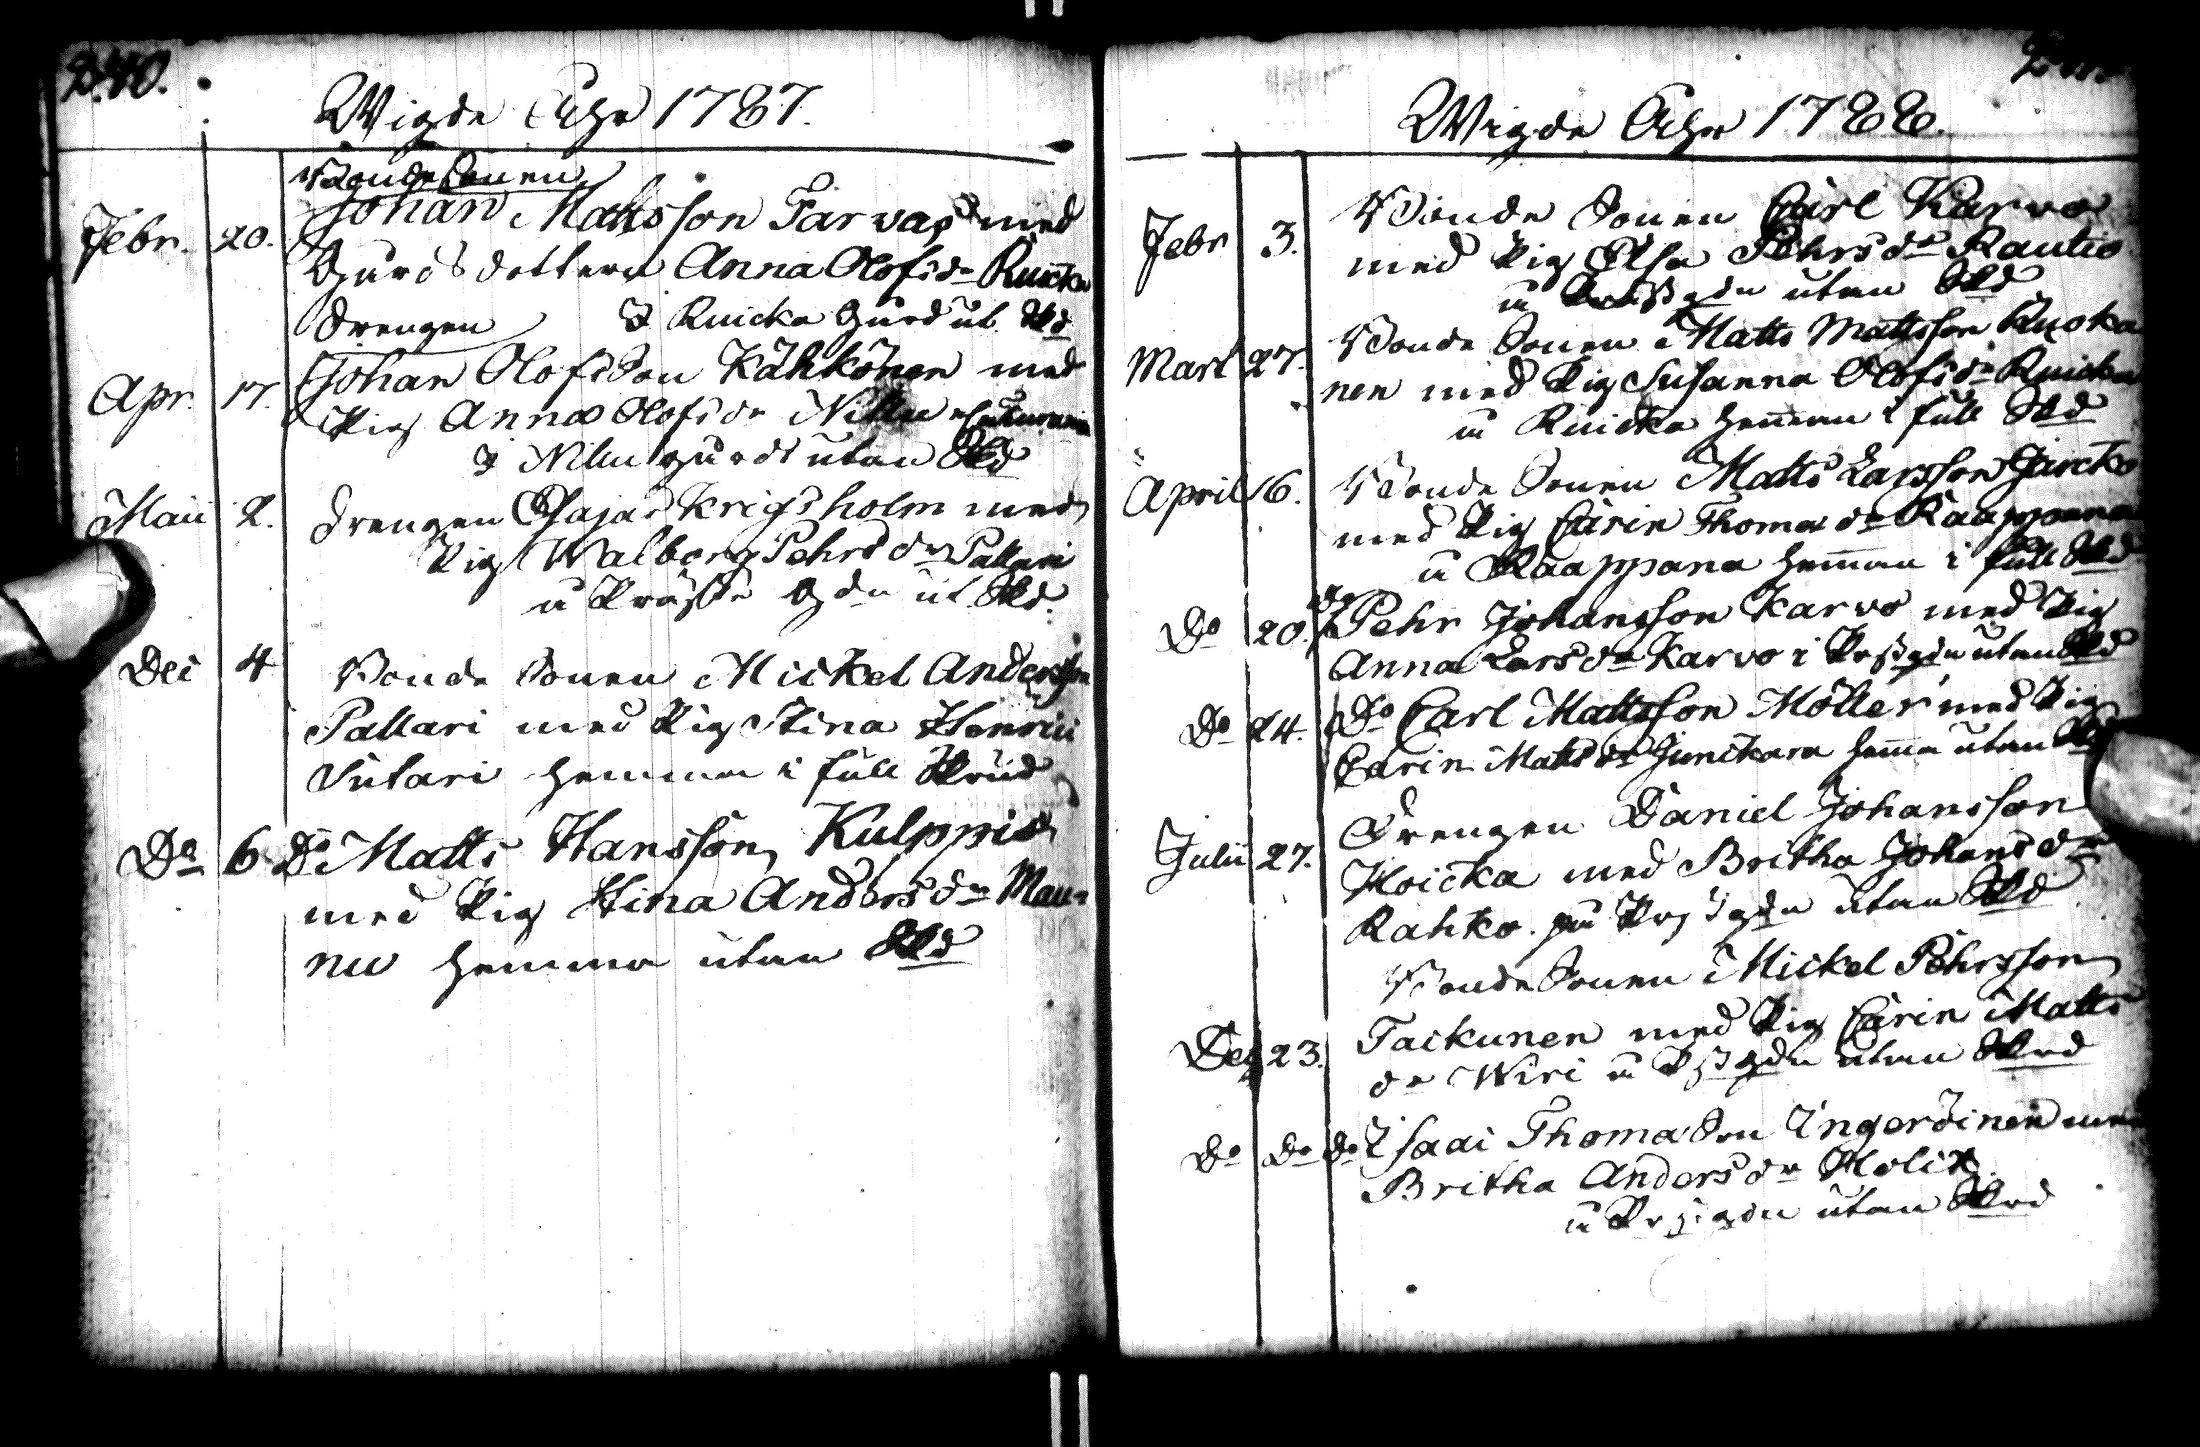 240.
Wigde Åhr 1787.
Bonde Sonen
Febr. 20. Johan Mattsson Tarvas med
Gårds dottern Anna Olofsdr Ruicka
Drengen I Ruicka Gård ut. Skd
Apr. 17. Johan Olofsson Kähkönen med
Pig Anna Olofsdr Nilu
I Nilu gård utan Skd
Maii 2. Drengen Esajas Krigsholm med
Pig Walborg Pehrsdr Pallari
å Präste gdn ut. Skd.
Dec 4 Bonde Sonen Mickel Andersson
Pallari med Pig Stina Henric
Sutari hemma i full Skrud
Do 6 Do Matts Hansson Kulppi
med Pig Stina Andersdr Mau-
nu hemma utan Skd
Wigde Åhr 1788.
Febr 3. Bonde Sonen Carl Karvo
med Pig Elsa Pehrsdr Rautio
å Prestgdn utan Skd
Mart 27. Bonde Sonen Matts Mattsson Ruoka
nen med Pig Susanna Olofsdr Ruicka
å Ruicka hemman i full Skd
April 16. Bonde Sonen Matts Larsson Jarcko
med Pig Carin Thomasdr Kaappana
å Kaappana hemman i full Skd
Do 20. Do Pehr Johansson Karvo med Pig
Anna Larsdr Karvo i Prestgdn utan Skd
Do 24. Do Carl Mattsson Möller med Pig
Carin Mattsdr Junickara hema utan Skd
Julii 27. Drengen Daniel Johansson
Hoicka med Britha Johansdr
Rahko på Prestgdn utan Skd
Bonde Sonen Mickel Pehrsson
Dec 23. Taikunen med Pig Carin Matts
dr Wiri å Prstgdn utan Skrd
Do Do Do Isaac Thomasson Ingeröinen med
Britha Andersdr Holck
å Prstgdn utan Skrd